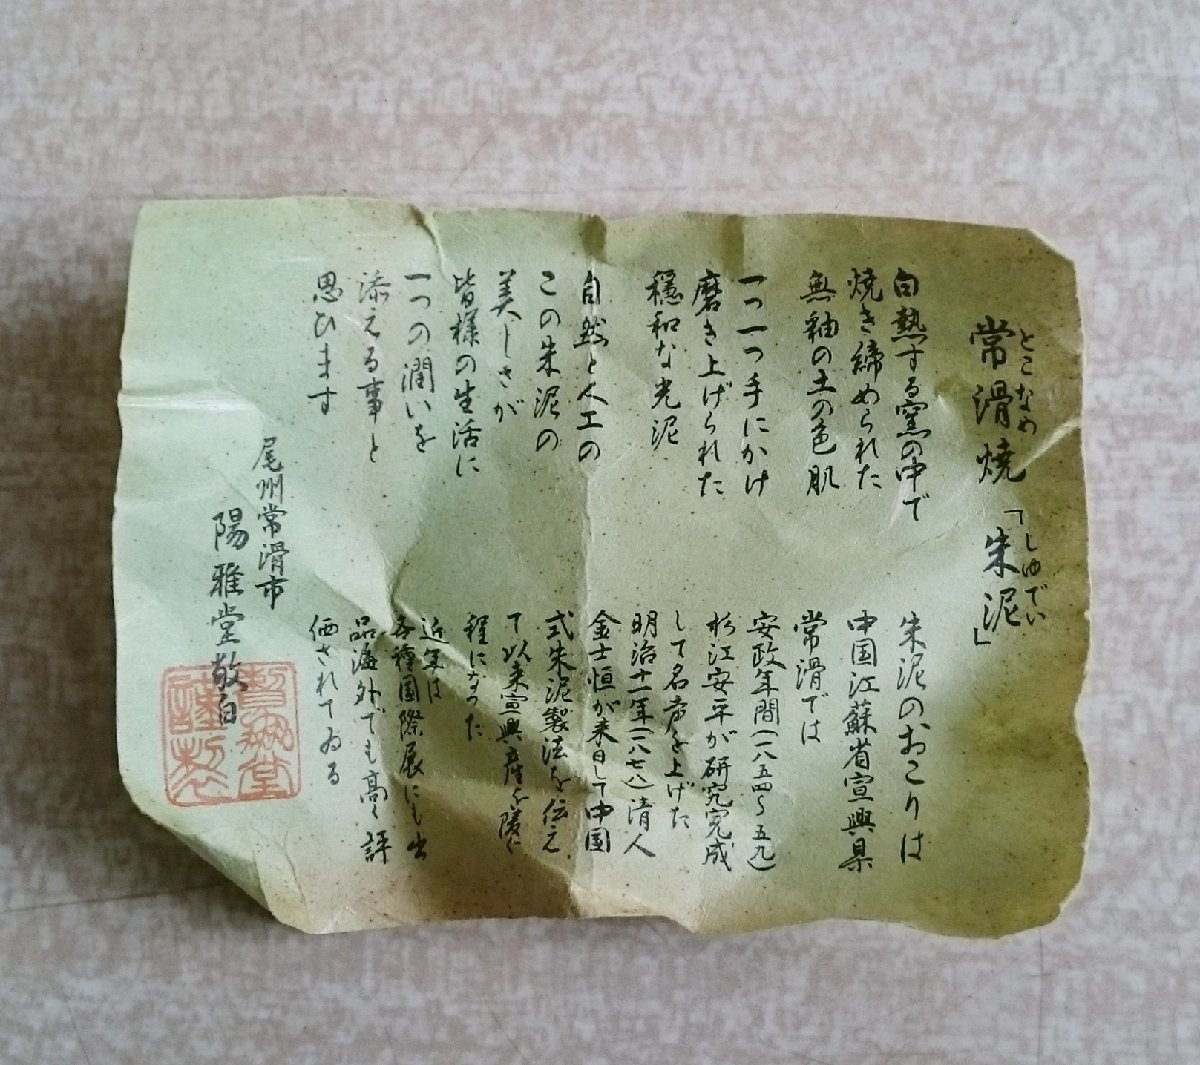 常滑焼「朱泥」
とこなめ
しゅでい
白熱する窯の中で
焼き締められた
無釉の土の色肌
一つ一つ手にかけ
磨き上げられた
穏和な光泥
自然と人工の
この朱泥の
美しさが
皆様の生活に
一つの潤いを
添える事と
思ひます
朱泥のおこりは
中国江蘇省宣興県
常滑では
安政年間(一八五四〜五九)
杉江安平が研究完成
して名声を上げた
明治十一年(一八七八)清人
金士恒が来日して中国
式朱泥製法を伝え
て以来宣興産を陵ぐ
程になった
近年は
各種国際展にも出
品海外でも高く評
価されてゐる
尾州常滑市
陽雅堂敬白